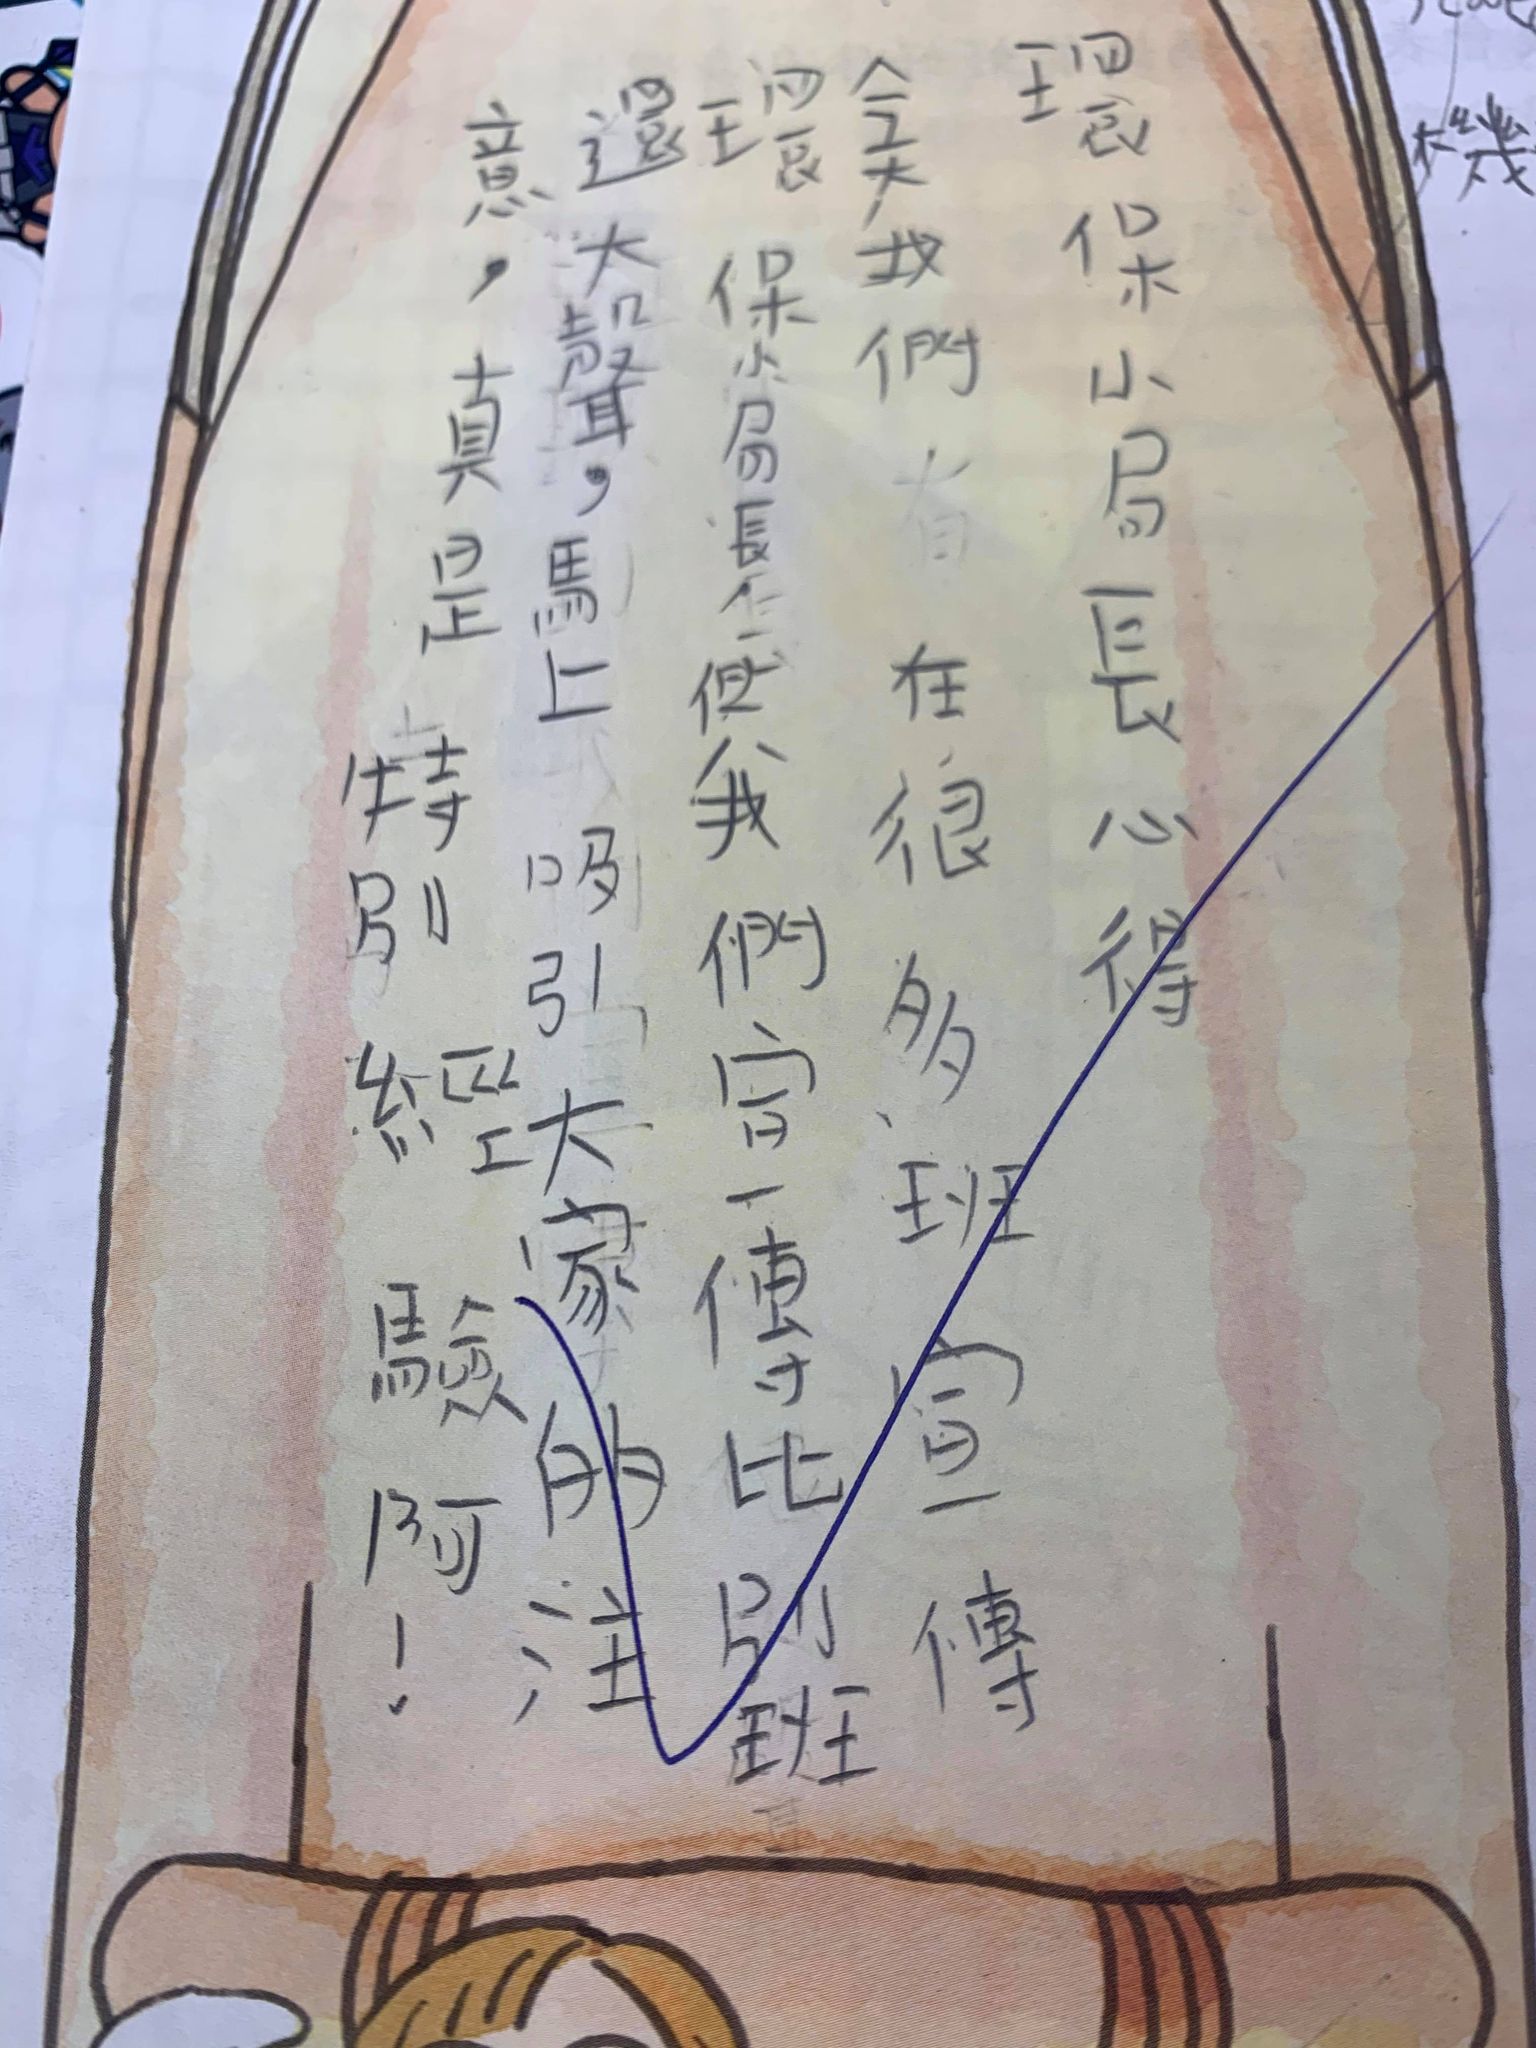 環保小局長心得
今天,我們在很多班宣傳
環保小局長使我們宣傳比別班
還大聲,馬上吸引大家的注
意,真是特別經驗阿!